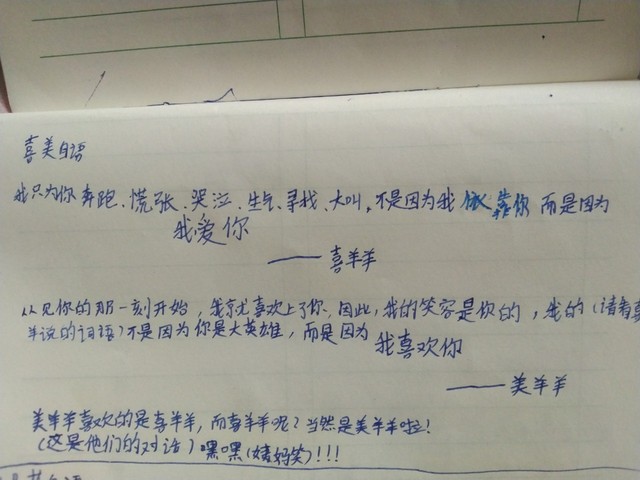 喜美自语
我只为你奔跑、慌张、哭泣、生气、寻找、大叫，不是因为我依靠你而是因为
我爱你
——喜羊羊
从见你的那一刻开始，我就喜欢上了你，因此，我的笑容是你的，我的（请看喜
羊说的词语）不是因为你是大英雄，而是因为我喜欢你
——美羊羊
美羊羊喜欢的是喜羊羊，而喜羊羊呢？当然是美羊羊啦！
（这是他们的对话）嘿嘿（姨妈笑）!!!